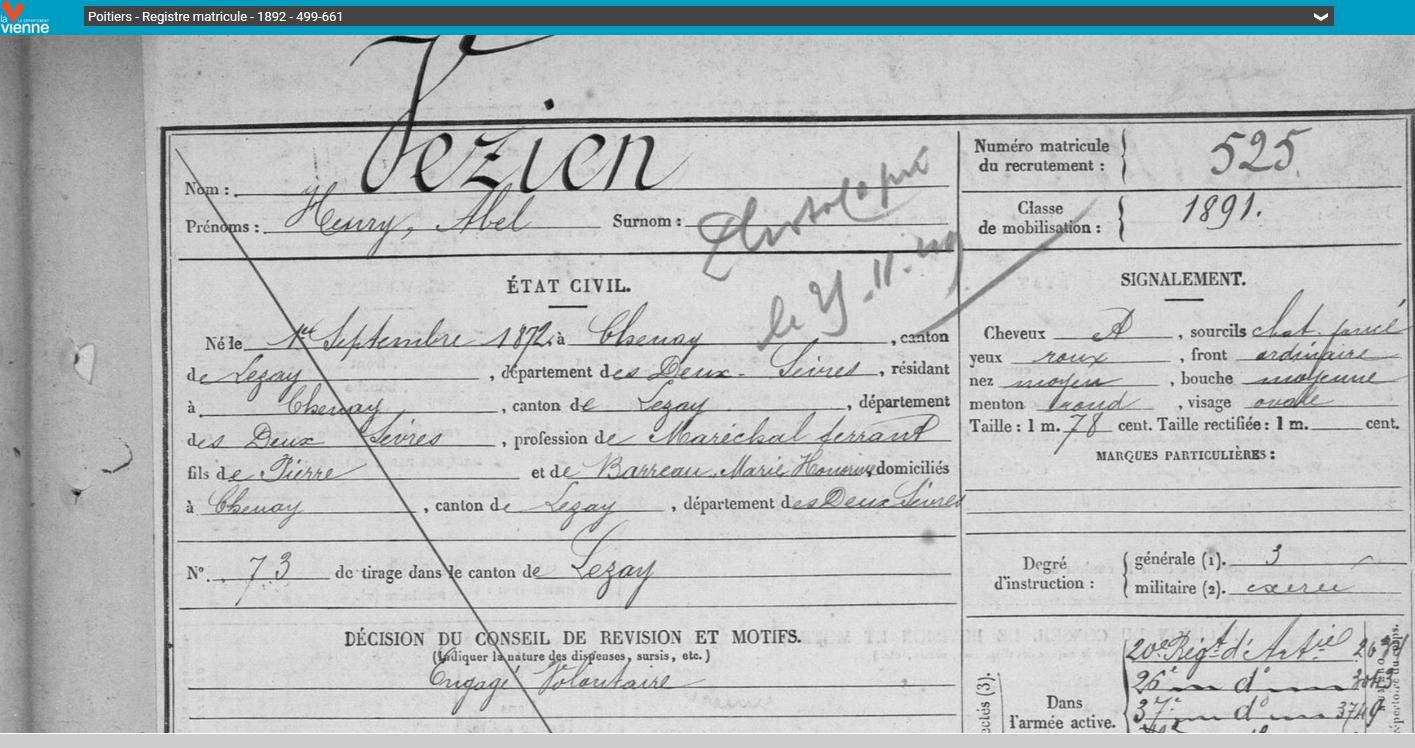 la vienne
LE DÉPARTEMENT
Poitiers - Registre matricule - 1892 - 499-661
Nom : Vezien
Prénoms : Henry, Abel Surnom :
le 25.11.19
Numéro matricule du recrutement : 525
Classe de mobilisation : 1891.
ÉTAT CIVIL.
Né le 1er Septembre 1872, à Chenay, canton
de Lezay, département des Deux-Sèvres, résidant
à Chenay, canton de Lezay, département
des Deux Sèvres, profession de Maréchal ferrant
fils de Pierre et de Barreau, Marie Honorine, domiciliés
à Chenay, canton de Lezay, département des Deux Sèvres
N° 73 de tirage dans le canton de Lezay
DÉCISION DU CONSEIL DE REVISION ET MOTIFS.
(Indiquer la nature des dispenses, sursis, etc.)
Engagé Volontaire
SIGNALEMENT.
Cheveux et, sourcils chat. foncé
yeux roux, front ordinaire
nez moyen, bouche moyenne
menton rond, visage ovale
Taille : 1 m. 78 cent. Taille rectifiée : 1 m. cent.
MARQUES PARTICULIÈRES :
Degré d'instruction :
générale (1). 3
militaire (2). exercé
Dans l'armée active.
20e Régt d'Artie
26e d°
37e d° 3749